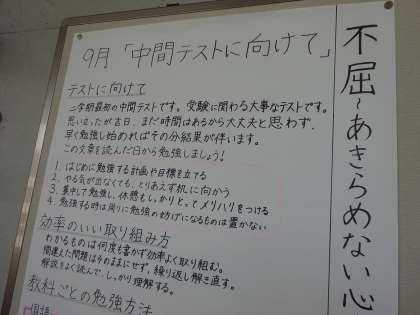 9月「中間テストに向けて」
不屈～あきらめない心
テストに向けて
二学期最初の中間テストです。受験に関わる大事なテストです。
思い立ったが吉日、まだ時間はあるから大丈夫と思わず、
早く勉強し始めればその分結果が伴います。
この文章を読んだ日から勉強しましょう!
1. はじめに勉強する計画や目標を立てる
2. やる気が出なくても、とりあえず机に向かう
3. 集中して勉強し、休憩もしっかりとってメリハリをつける
4. 勉強する時は周りに勉強の妨げになるものは置かない
効率のいい取り組み方
わかるものは何度も書かず効率よく取り組む。
間違えた問題はそのままにせず、繰り返し解き直す。
解説をよく読んで、しっかり理解する。
教科ごとの勉強方法